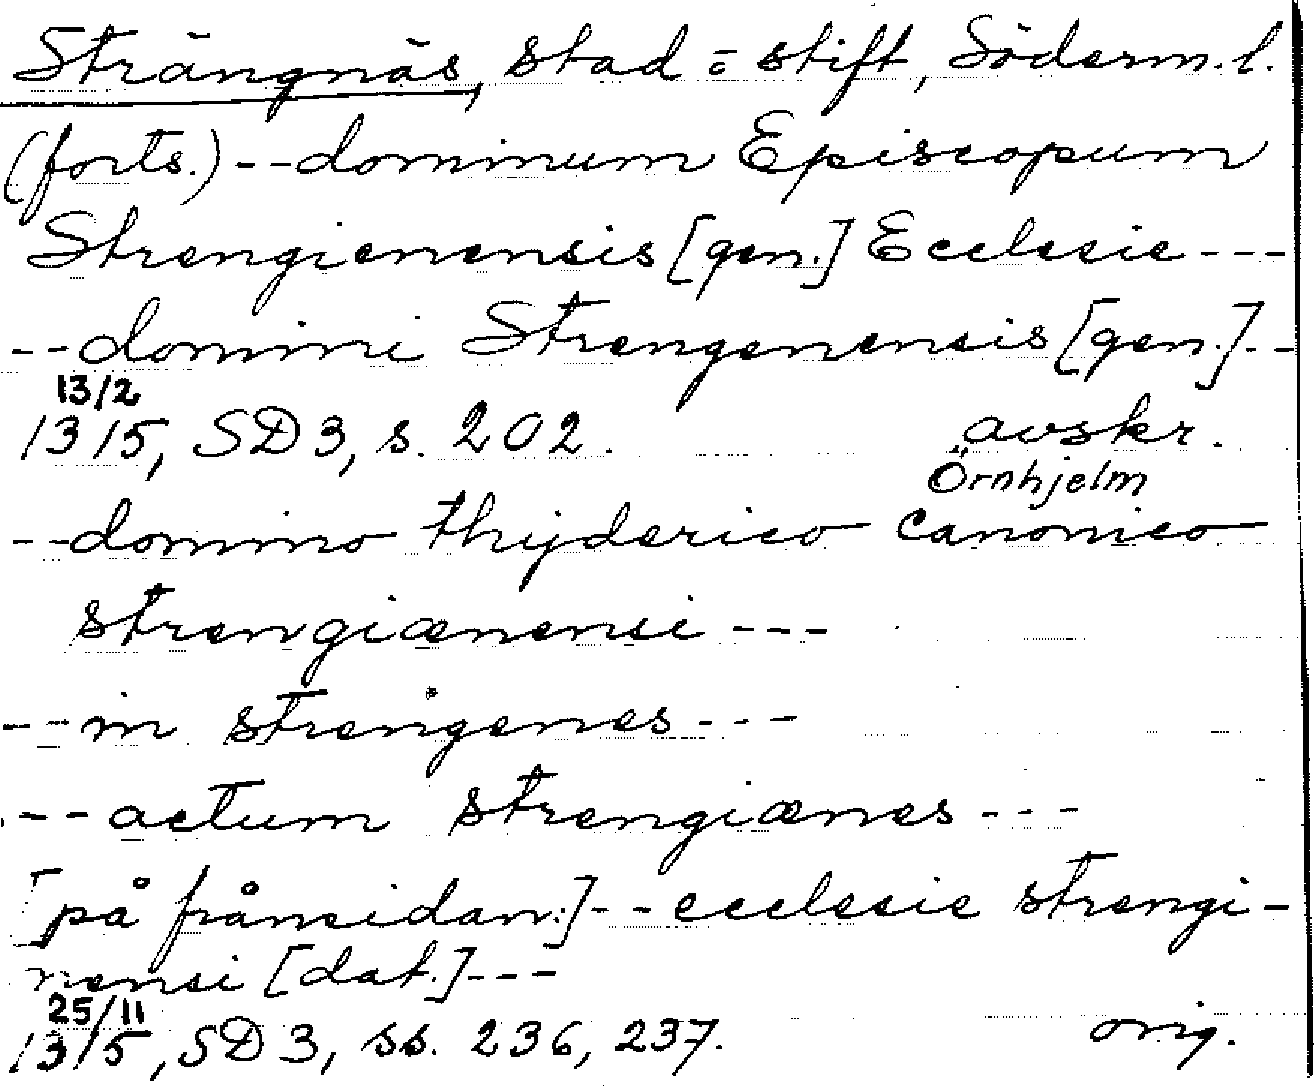 Strängnäs, stad = stift, Söderm.l.
(forts.) -- dominum Episcopum
Strengienensis [gen.] Ecclesie ---
-- domini Strengenensis [gen.] --
13/2
1315, SD 3, s. 202. avskr.
Örnhjelm
-- domino thyderico canonico
strengiænensi ---
-- in strengenes ---
--- actum strengiænes ---
[på frånsidan:] -- ecclesie strengi-
nensi [dat.] ---
25/11
1315, SD 3, ss. 236, 237. orig.